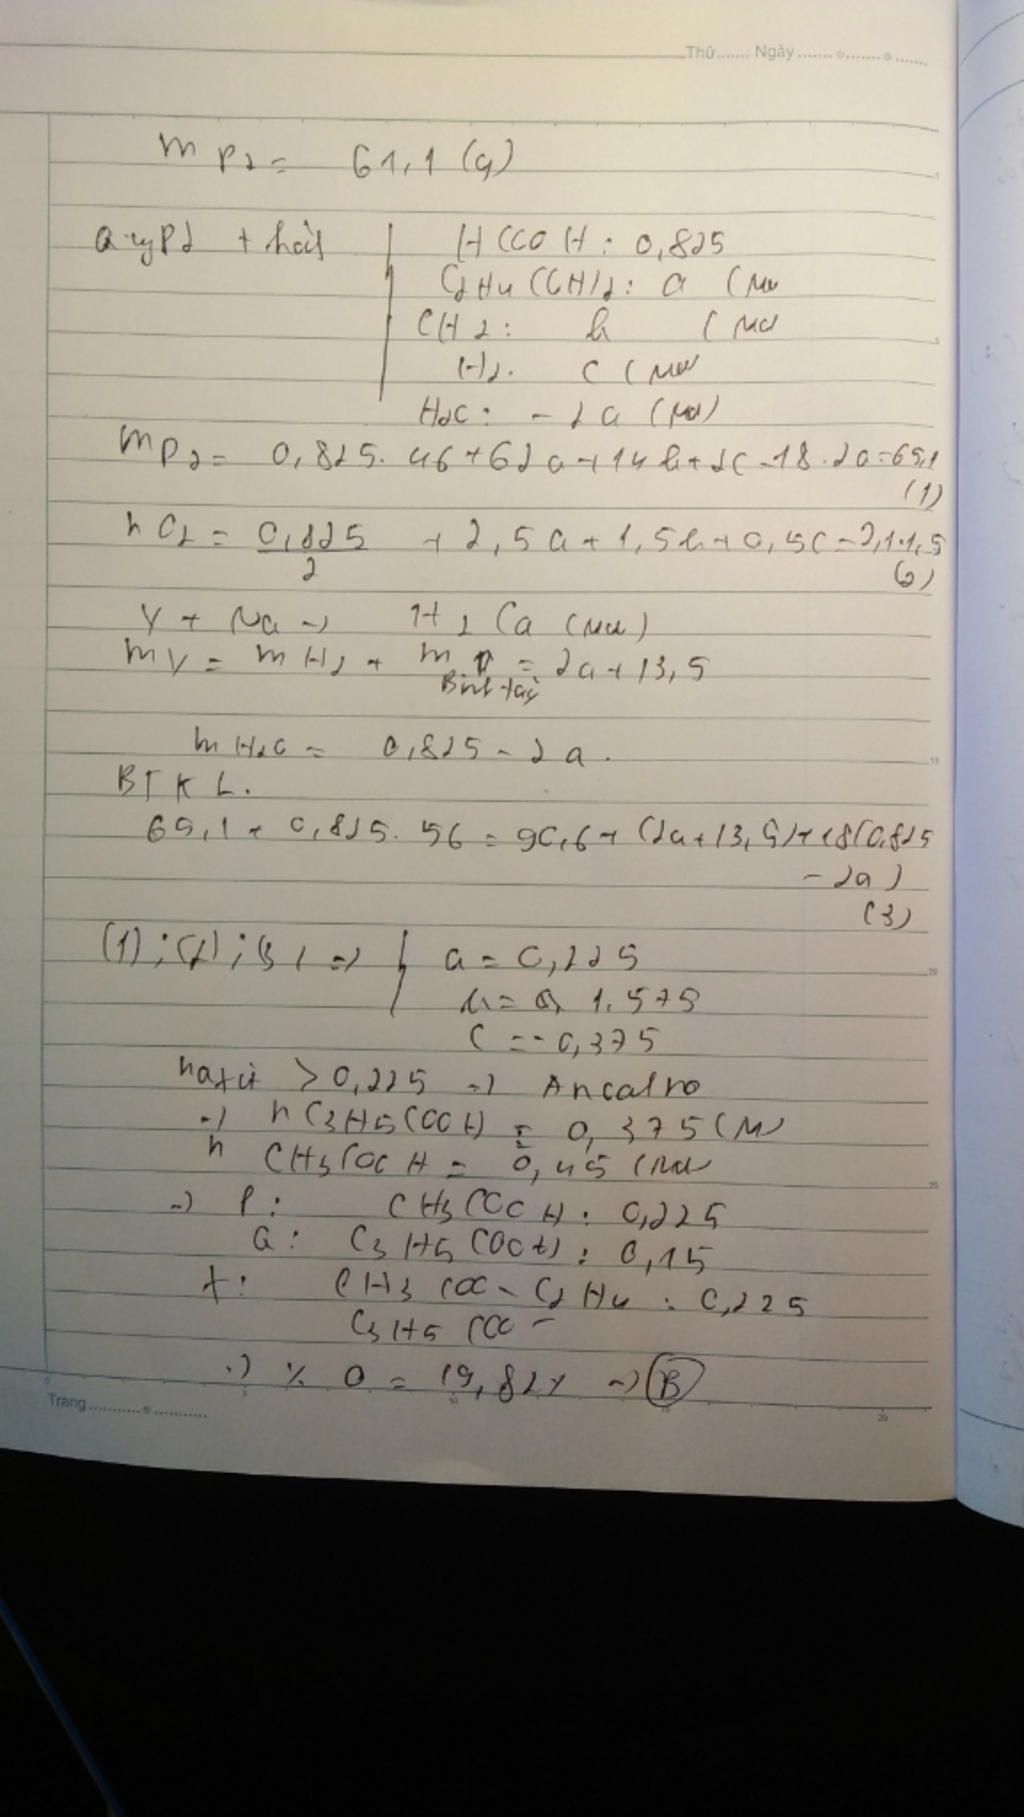 Thứ....... Ngày.......
m P2 = 61,1 (g)
HCOOH: 0,825
C2H4(OH)2: a (mol
CH2: b (mol
H2: c (mol
H2O: -2a (mol)
mP2 = 0,825.46+62a+14b+2c-18.2a=65,1
(1)
nO2 = 0,825/2 + 2,5a+1,5b+0,5c=2,1.1,5
(2)
Y + Na -> H2 (a (mol)
mY = mH2 + m Bình tăng = 2a+13,5
mH2O = 0,825-2a.
BTKL.
65,1+0,825.56=90,6+(2a+13,5)+18(0,825
-2a)
(3)
(1);(2);(3) => a=0,225
b= 1.575
c=-0,375
naxit > 0,225 => Ancol no
-> nC3H5COOH = 0,375(M
n CH3COOH = 0,45 (mol
-> P: CH3COOH: 0,225
Q: C3H5COOH: 0,15
X: CH3COO-C2H4: 0,225
C3H5COO-
-> % O = 19,82% -> B
Trang.......